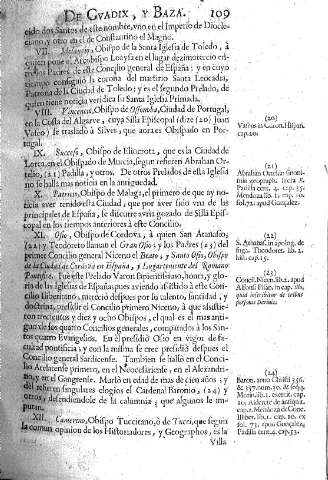 DE GVADIX, Y BAZA. 109
cido dos Santos de este nombre, uno en el Imperio de Diocle-
ciano, y otro en el de Constantino el Magno.
VII. Melancio, Obispo de la Santa Iglesia de Toledo, à
quien pone el Arçobispo Loaysa en el lugar dezimotercio en-
tre los Padres de este Concilio general de España; y en cuyo
tiempo consiguiò la corona del martirio Santa Leocadia,
Patrona de la Ciudad de Toledo; y es el segundo Prelado, de
quien tiene noticia veridica su Santa Iglesia Primada.
VIII. Vincencio, Obispo de Ossonoba, Ciudad de Portugal,
en la Costa de Algarve, cuya Silla Episcopal (dize (20) Juan
Vaseo) se trasladò à Silves, que aora es Obispado en Por-
tugal.
IX. Sucesso, Obispo de Eliocrota, que es la Ciudad de
Lorca, en el Obispado de Murcia, segun refieren Abrahan Or-
telio, (21) Padilla, y otros. De otros Prelados de esta Iglesia
no se halla mas noticia en la antiguedad.
X. Patricio, Obispo de Malaga, el primero de que ay no-
ticia aver tenido esta Ciudad, que por aver sido una de las
principales de España, se discurre avria gozado de Silla Epis-
copal en los tiempos anteriores à este Concilio.
XI. Osio, Obispo de Cordova, à quien San Atanasio,
(22) y Teodoreto llaman el Gran Osio; y los Padres (23) del
primer Concilio general Niceno el Beato; y Santo Osio, Obispo
de la Ciudad de Cordova en España, y Lugarteniente del Romano
Pontifice. Fue este Prelado Varon sapientissimo, honra, y glo-
ria de las Iglesias de España pues aviendo assistido à este Con-
cilio Liberitano, mereciò despues por su talento, santidad, y
doctrina, presidir el Concilio primero Niceno, à que assistie-
ron trecientos y diez y ocho Obispos, el qual es el mas anti-
guo de los quatro Concilios generales, comparados à los San-
tos quatro Evangelios. En èl presidiò Osio en vigor de fa-
cultad pontificia; y con la misma se cree presidiò despues el
Concilio general Sardicense. Tambien se hallò en el Conci-
lio Arelatense primero, en el Neocesariense, en el Alexandri-
no, y en el Gangrense. Muriò en edad de mas de cien años; y
del refieren singulares elogios el Cardenal Baronio, (24) y
otros, defendiendole de la calumnia; que algunos le im-
putan.
XII. Camerino, Obispo Tuccitano, ò de Tucci, que segun
la comun opinion de los Historiadores, y Geographos, es la
Villa
(20)
Vaseus in Caron. Hispan.
cap. 20.
(21)
Abrahan Ortelius
Padilla cent. 4. cap. 35.
Mendoza lib. 1. cap. 10.
fol. 71. apud Gonçalez.
(22)
S. Atanas. in apolog. de
fuga. Theodoret. lib. 2.
hist. cap. 15.
(23)
Concil. Nicen. lib. 2. apud
Hispaniæ
(24)
Baron. anno Christi 356.
&
cap. 2. Mendoza de Conc.
Illiber. lib. 1. cap. 10. ex
fol. 71. apud Gonçalez,
Padilla cent. 4. cap. 53.